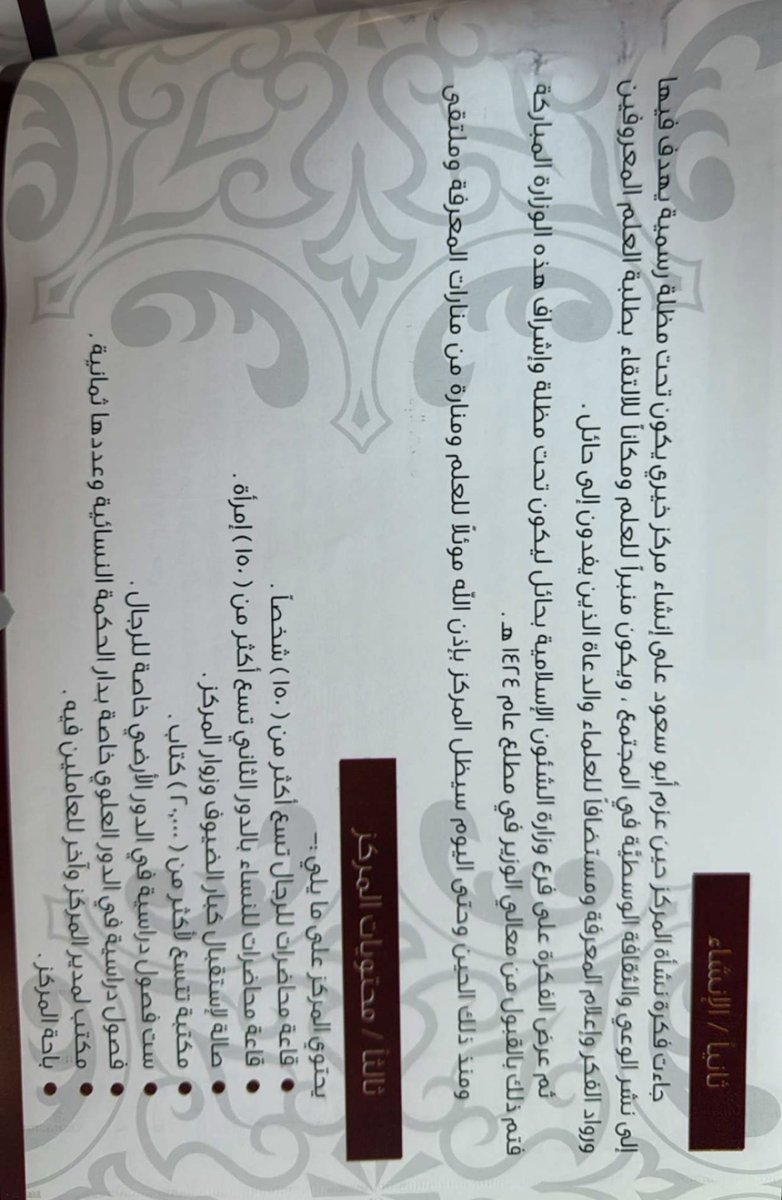 ثانياً / الإنشاء
جاءت فكرة نشأة المركز حين عزم أبو سعود على إنشاء مركز خيري يكون تحت مظلة رسمية يهدف فيها
إلى نشر الوعي والثقافة الوسطيّة في المجتمع ، ويكون منبراً للعلم ومكاناً للالتقاء بطلبة العلم المعروفين
ورواد الفكر وإعلام المعرفة ومستضافاً للعلماء والدعاة الذين يفدون إلى حائل .
ثم عرض الفكرة على فرع وزارة الشئون الإسلامية بحائل ليكون تحت مظلة وإشراف هذه الوزارة المباركة
فتم ذلك بالقبول من معالي الوزير في مطلع عام ١٤٢٤ هـ .
ومنذ ذلك الحين وحتى اليوم سيظل المركز بإذن الله موئلاً للعلم ومنارة من منارات المعرفة وملتقى
ثالثاً / محتويات المركز
يحتوي المركز على ما يلي :-
• قاعة محاضرات للرجال تسع أكثر من ( ١٥٠ ) شخصاً .
• قاعة محاضرات للنساء بالدور الثاني تسع أكثر من ( ١٥٠ ) إمرأة .
• صالة لإستقبال كبار الضيوف وزوار المركز .
• مكتبة تتسع لأكثر من ( ٢٠,٠٠٠ ) كتاب .
• ست فصول دراسية في الدور الأرضي خاصة للرجال .
• فصول دراسية في الدور العلوي خاصة بدار الحكمة النسائية وعددها ثمانية .
• مكتب لمدير المركز وآخر للعاملين فيه .
• باحة المركز .